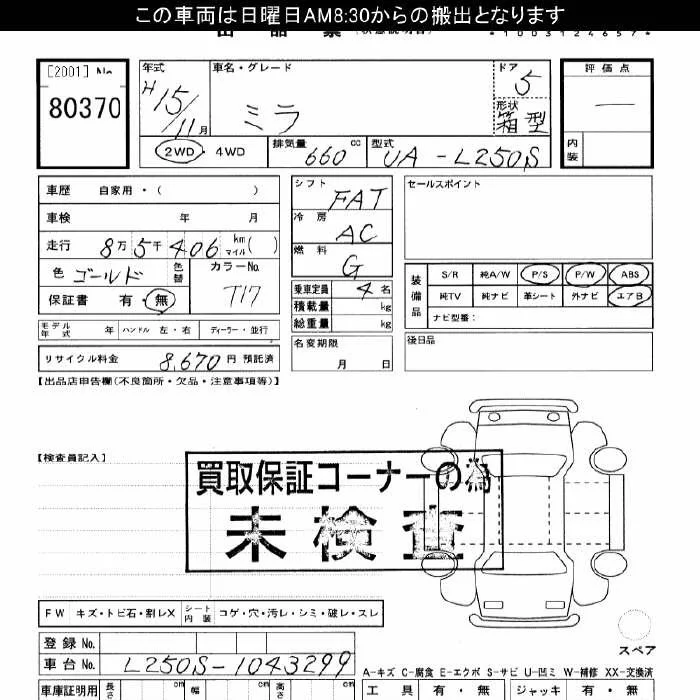 この車両は日曜日AM8:30からの搬出となります
*1003124657*
[2001] No
80370
年式 H15/11月
車名・グレード ミラ
ドア 5
形状 箱型
評価点 —
内装
2WD・4WD
排気量 660 cc
型式 UA-L250S
車歴 自家用・( )
車検 年 月
走行 8万5千406 km マイル( )
色 ゴールド 色替 カラーNo. T17
保証書 有・無
モデル年式 年 ハンドル 左・右 ディーラー・並行
リサイクル料金 8,670円 預託済
シフト FAT
冷房 AC
燃料 G
乗車定員 4名
積載量 kg
総重量 kg
名変期限
月 日
セールスポイント
装備品
S/R 純A/W P/S P/W ABS
純TV 純ナビ 革シート 外ナビ エアB
ナビ型番:
後日品
【出品店申告欄(不良箇所・欠品・注意事項等)】
【検査員記入】
買取保証コーナーの為
未検査
FW キズ・トビ石・割レX シート内装 コゲ・穴・汚レ・シミ・破レ・スレ
スペア
登録No.
車台No. L250S-1043299
A-キズ C-腐食 E-エクボ S-サビ U-凹ミ W-補修 XX-交換済
車庫証明用 長さ cm 幅 cm 高さ cm
工具 有・無 ジャッキ 有・無